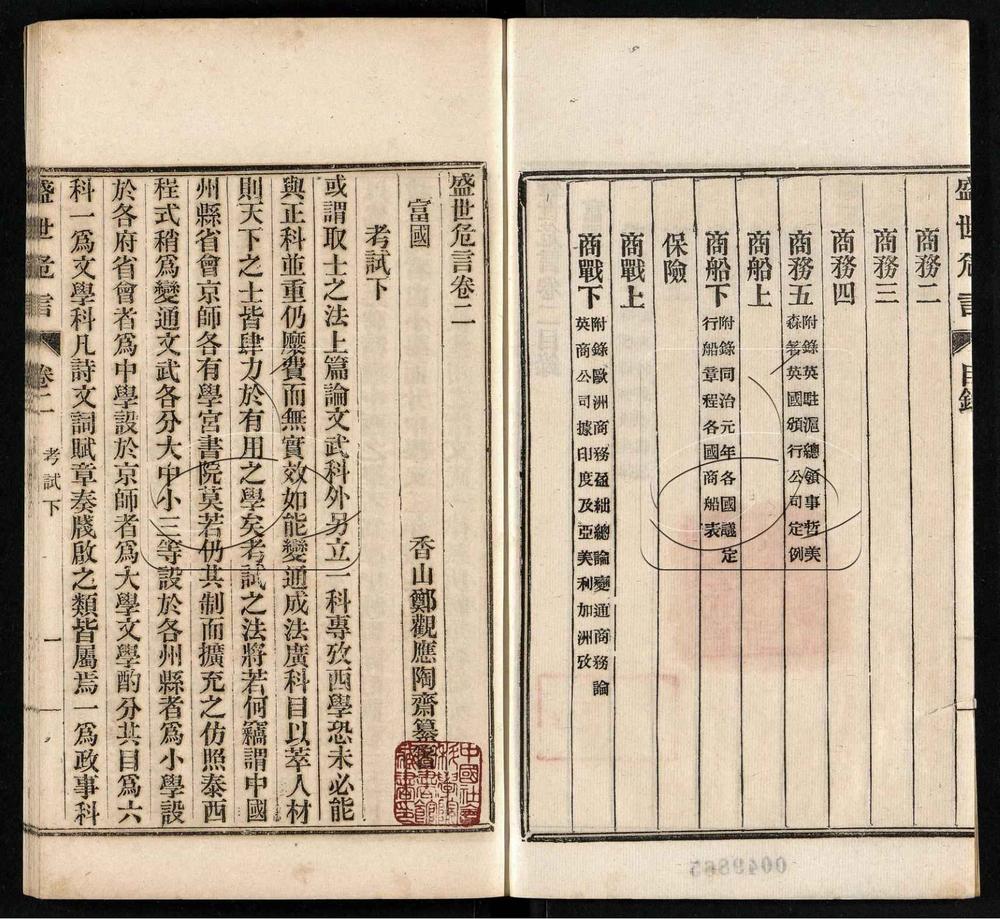 盛世危言 目錄
商務二
商務三
商務四
商務五 附錄英駐滬總領事哲美
森著英國頒行公司定例
商船上
商船下 附錄同治元年各國議定
行船章程各國商船表
保險
商戰上
商戰下 附錄歐洲商務盈絀總論變通商務論
英商公司據印度及亞美利加洲攷
盛世危言卷二
富國
香山鄭觀應陶齋纂著
考試下
或謂取士之法上篇論文武科外另立一科專攷西學恐未必能
與正科並重仍縻費而無實效如能變通成法廣科目以萃人材
則天下之士皆肆力於有用之學矣考試之法將若何竊謂中國
州縣省會京師各有學宮書院莫若仍其制而擴充之仿照泰西
程式稍爲變通文武各分大中小三等設於各州縣者爲小學設
於各府省會者爲中學設於京師者爲大學文學酌分其目爲六
科一爲文學科凡詩文詞賦章奏牋啟之類皆屬焉一爲政事科
盛世危言 卷二 考試下 一
中國社會
科學院
圖書館
藏書印
0049865